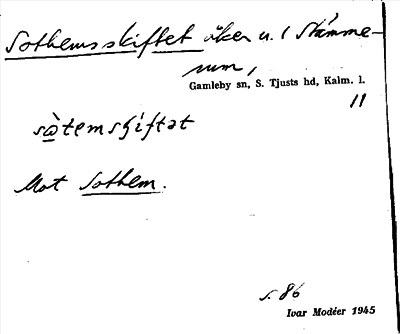 Sothemsskiftet åker u. 1 Stämme-
rum,
Gamleby sn, S. Tjusts hd, Kalm. l.
11
sὼtemsʃiftət
Mot Sothem.
s. 86
Ivar Modéer 1945